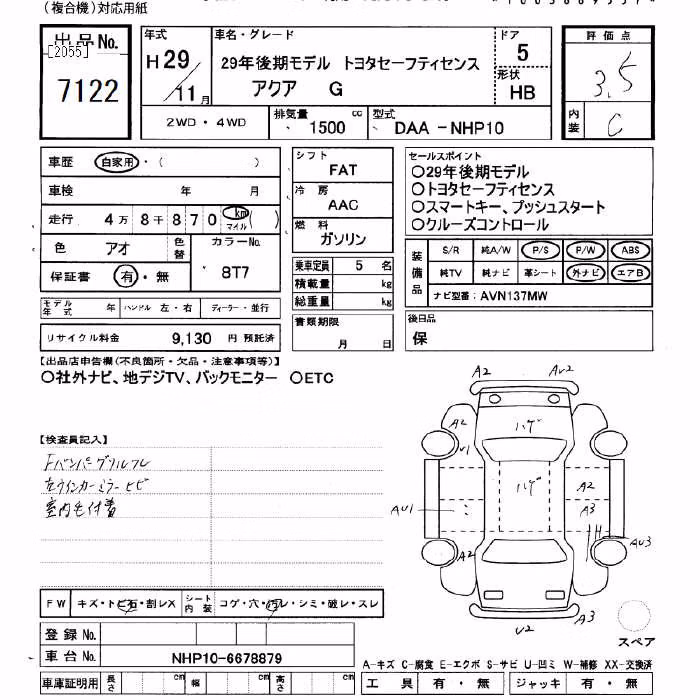 (複合機)対応用紙
出品No.
[2055]
7122
年式
H29/11月
車名・グレード
29年後期モデル トヨタセーフティセンス
アクア G
ドア
5
形状
HB
評価点
3.5
内装
C
2WD・4WD
排気量
1500 cc
型式
DAA -NHP10
車歴 自家用・( )
車検 年 月
走行 4万8千870 km マイル ( )
色 アオ 色替 カラーNo. 8T7
保証書 有・無
モデル年式 年 ハンドル 左・右 ディーラー・並行
リサイクル料金 9,130 円 預託済
シフト
FAT
冷房
AAC
燃料
ガソリン
乗車定員 5 名
積載量 kg
総重量 kg
書類期限
月 日
セールスポイント
○29年後期モデル
○トヨタセーフティセンス
○スマートキー、プッシュスタート
○クルーズコントロール
装備品
S/R 純A/W P/S P/W ABS
純TV 純ナビ 革シート 外ナビ エアB
ナビ型番: AVN137MW
後日品
保
【出品店申告欄(不良箇所・欠品・注意事項等)】
○社外ナビ、地デジTV、バックモニター ○ETC
【検査員記入】
Fバンパーグリルワレ
左ウインカーミラーヒビ
室内毛付着
A2 AU2
A2 ハゲ A2
U1
ハゲ A2
AU1 A3
A2 AU3
U2 A3
スペア
FW キズ・トビ石・割レX シート内装 コゲ・穴・汚レ・シミ・破レ・スレ
登録No.
車台No. NHP10-6678879
車庫証明用 長さ cm 幅 cm 高さ cm
A-キズ C-腐食 E-エクボ S-サビ U-凹ミ W-補修 XX-交換済
工具 有・無 ジャッキ 有・無